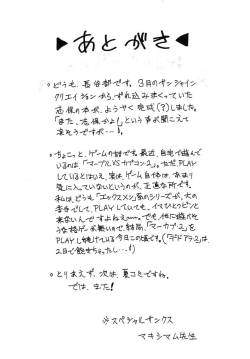 ▶あとがき◀
。どうも、長谷部です。3月のサンシャイン
クリエイションから、ずれ込みまくっていた
志保の本が、ようやく完成(?)しました。
「また、志保かよ!」という声が聞こえて
来そうですが…!。
。ちょこっと、ゲームの話です。最近、自宅で遊んで
いるのは、「マーヴルVSカプコン2」。ただ、PLAY
しているとはいえ、実は、ゲーム自体は、あまり
気に入っていないというのが、正直な所です。
私は、どうも「エックスメン」系のシリーズが、大の
苦手でして、PLAYしていても、イマいちピンと
来ないんですよねぇ…。でも、他に遊べそ
うな格ゲが無いので、結局、「マーカプ2」を
PLAYし続けている今日この頃です。(「ジャドアラ2」は、
2日で飽きちゃったし…!)
。とりあえず、次は、夏コミですね。
では、また!
※スペシャルサンクス
マキシマム先生